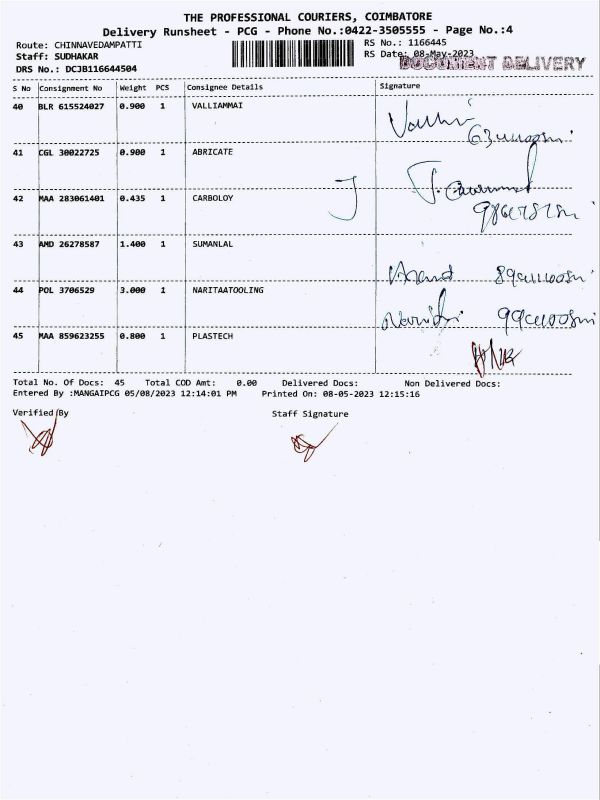 THE PROFESSIONAL COURIERS, COIMBATORE
Delivery Runsheet - PCG - Phone No.:0422-3505555 - Page No.:4
Route: CHINNAVEDAMPATTI
RS No.: 1166445
Staff: SUDHAKAR
RS Date: 08-May-2023
DOCUMENT DELIVERY
DRS No.: DCJB116644504
S No Consignment No Weight PCS Consignee Details Signature
40 BLR 615524027 0.900 1 VALLIAMMAI
41 CGL 30022725 0.900 1 ABRICATE
42 MAA 283061401 0.435 1 CARBOLOY
43 AMD 26278587 1.400 1 SUMANLAL
44 POL 3706529 3.000 1 NARITAATOOLING
45 MAA 859623255 0.800 1 PLASTECH
Total No. Of Docs: 45 Total COD Amt: 0.00 Delivered Docs: Non Delivered Docs:
Entered By :MANGAIPCG 05/08/2023 12:14:01 PM Printed On: 08-05-2023 12:15:16
Verified By Staff Signature